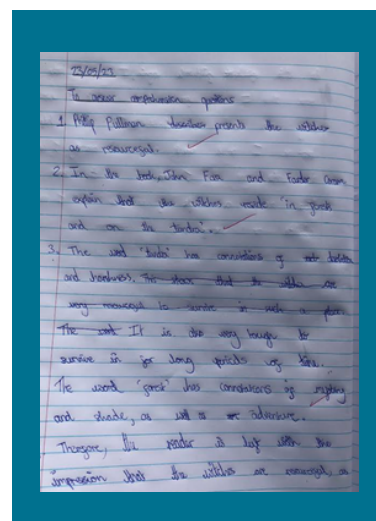 23/05/23
To answer comprehension questions
1. Philip Pullman describes presents the witches
as resourceful.
2. In the book, John Faa and Farder Coram
explain that the witches reside 'in forests
and on the tundra'.
3. The word 'tundra' has connotations of
and harshness. This shows that the witches are
very resourceful to survive in such a place.
The word It is also very tough to
survive in for long periods of time.
The word 'forest' has connotations of mystery
and shade, as well as adventure.
Therefore, the reader is left with the
impression that the witches are resourceful, as